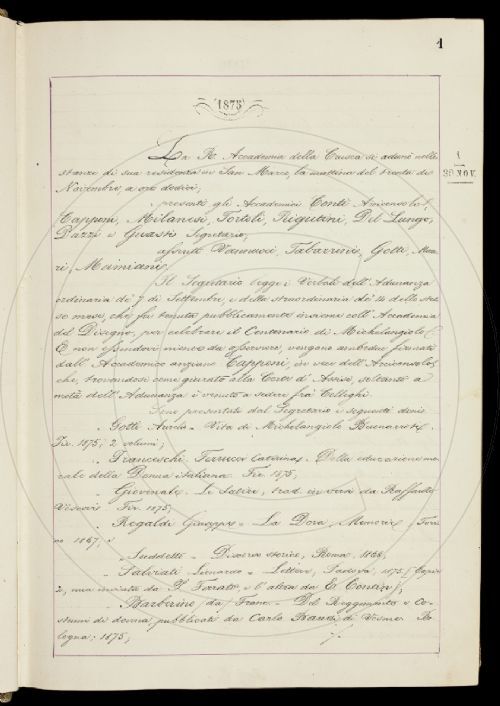 1
1875
1
30 NOV.
La R. Accademia della Crusca si adunò nelle
stanze di sua residenza in San Marco, la mattina del trenta di
Novembre, a ore dodici;
presenti gli Accademici Conti Arciconsolo,
Capponi, Milanesi, Tortoli, Rigutini, Del Lungo,
Dazzi e Guasti Segretario;
assenti Vannucci, Tabarrini, Gotti,
Mamiani.
Il Segretario legge i Verbali dell'Adunanza
ordinaria de' 7 di Settembre, e della straordinaria de' 14 dello stes-
so mese, che fu tenuta pubblicamente insieme coll'Accademia
del Disegno, per celebrare il Centenario di Michelangiolo.
E non essendovi niente da osservare, vengono ambedue firmati
dall'Accademico anziano Capponi, in vece dell'Arciconsolo,
che, trovandosi come giurato alla Corte d'Assise, soltanto a
metà dell'Adunanza è venuto a sedere fra' Colleghi.
Sono presentati dal Segretario i seguenti doni:
Gotti Aurelio - Vita di Michelangiolo Buonarroti.
Fir. 1875; 2 volumi;
Franceschi Ferrucci Caterina - Della educazione mo-
rale della Donna italiana. Fir. 1875;
Giovenale - Le Satire, trad. in versi da Raffaello
Vescovi. Fir. 1875;
Regaldi Giuseppe - La Dora, Memorie, Tori-
no 1867, e
Suddetto - storico, Roma, 1868;
Salviati Lionardo - Lettere, Padova, 1875 (Copie
2, una inviata da P. Ferrato, e l'altra da E. Contin);
Barberino (da) Franc. - Del Reggimento e Co-
stumi di donna, pubblicati da Carlo Baudi di Vesme. Bo-
logna: 1875;